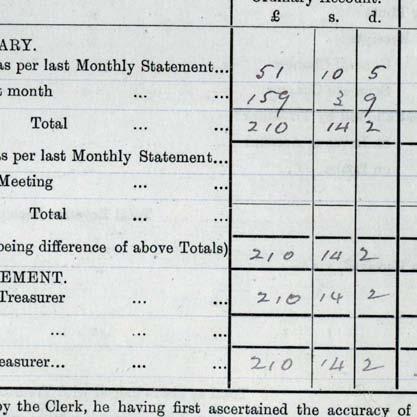 Ordinary Account.
£ s. d.
ARY.
as per last Monthly Statement... 51 10 5
t month ... ... 159 3 9
Total ... ... 210 14 2
s per last Monthly Statement...
Meeting ... ...
Total ... ...
being difference of above Totals) 210 14 2
EMENT.
Treasurer ... ... 210 14 2
... ...
easurer... ... 210 14 2
by the Clerk, he having first ascertained the accuracy of